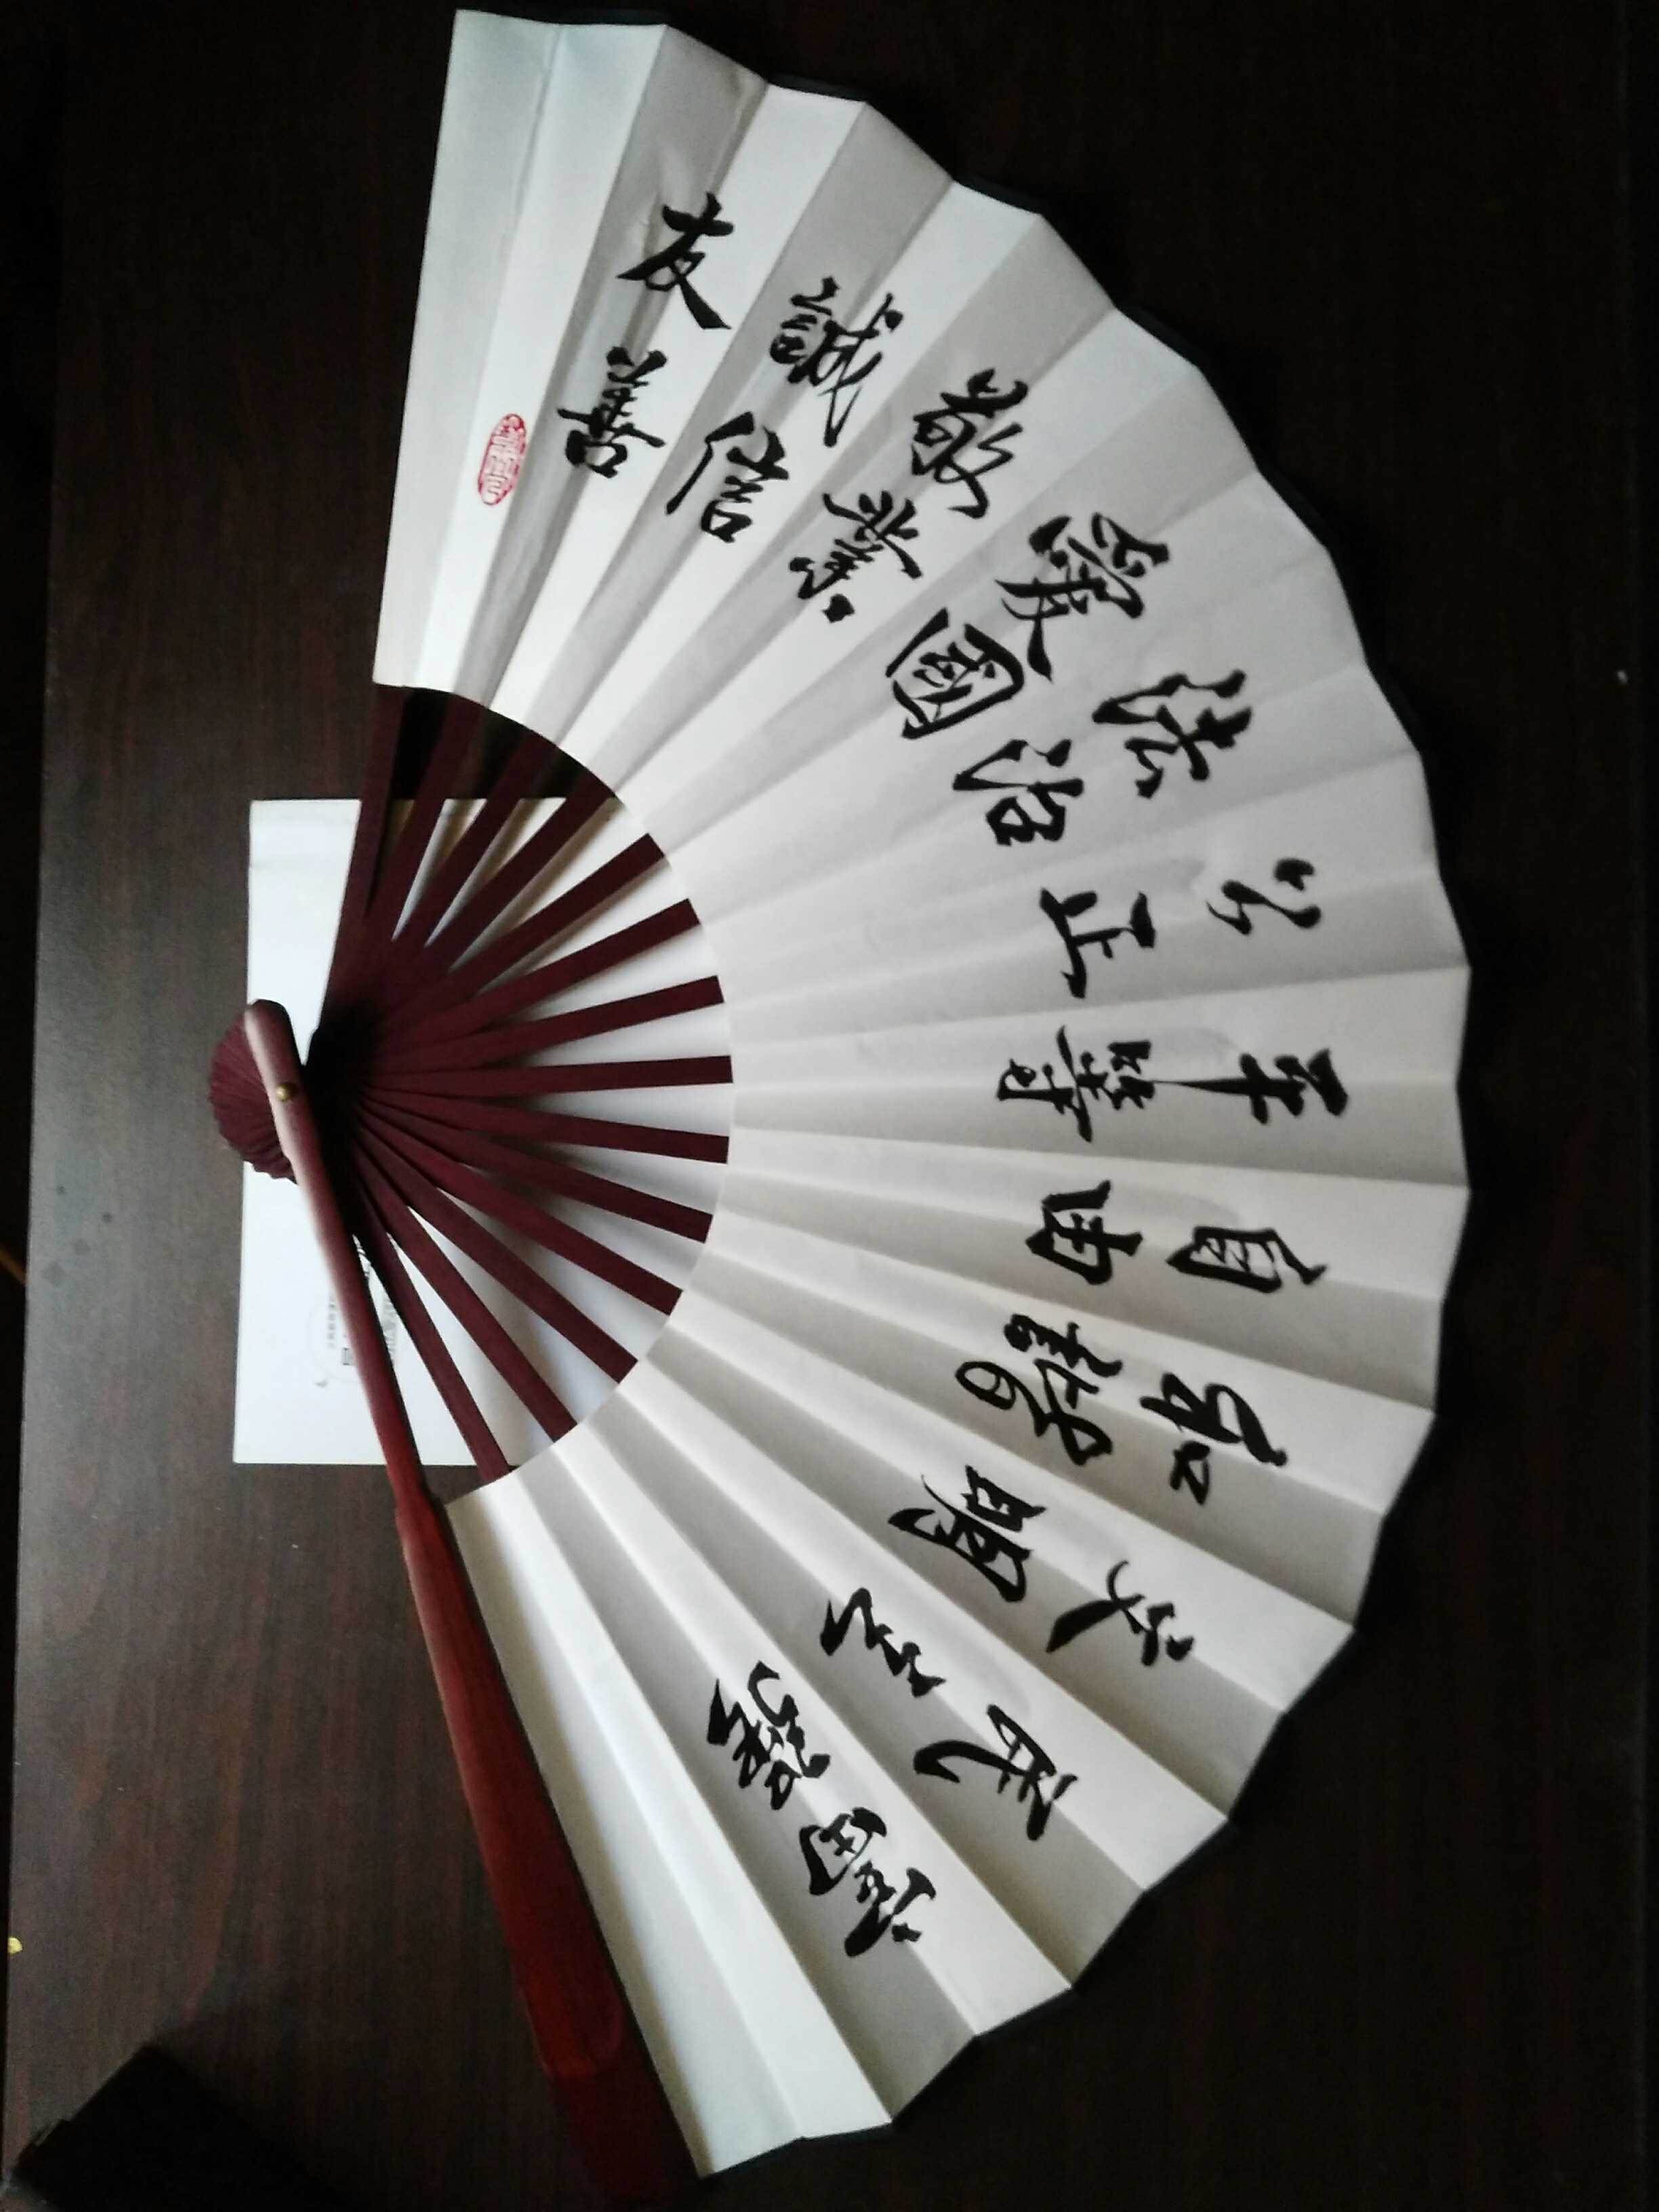 富強
民主
文明
和諧
自由
平等
公正
法治
愛國
敬業
誠信
友善